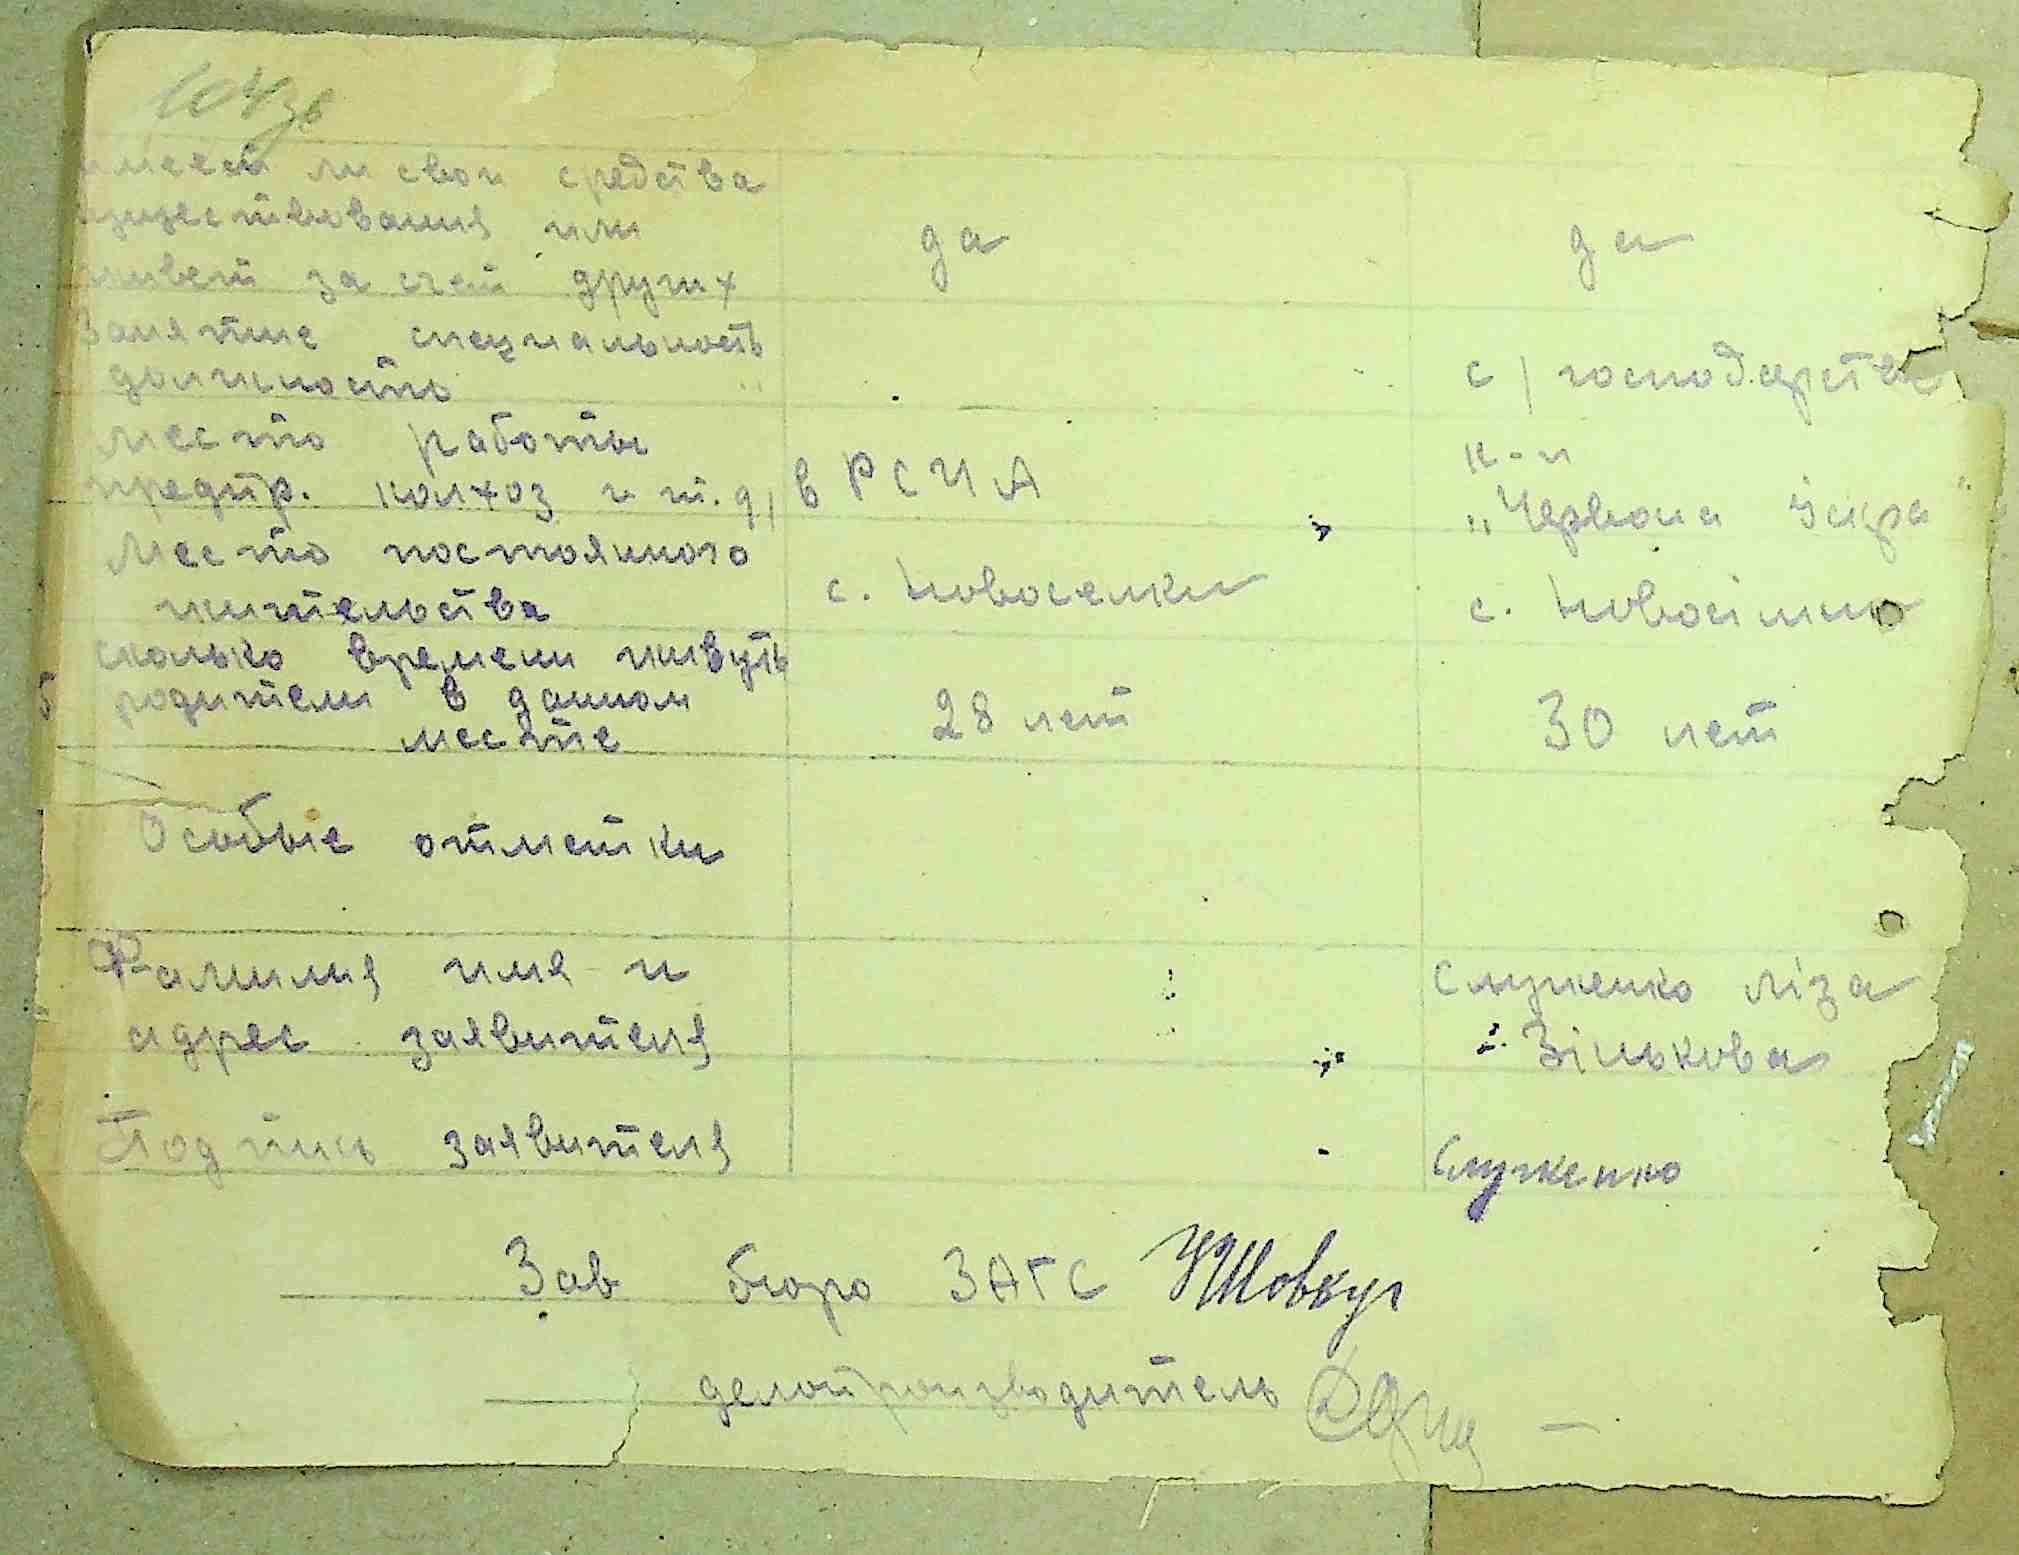 104 зв
имеет ли свои средства
существования или
живет за счет других
да
да
Занятие специальность
должность
с/господарств
место работы
предпр. колхоз и т. д.
в РСЧА
к-п
"Червона Іскра"
Место постоянного
жительства
с. Новоселки
с. Новосілки
сколько времени живуть
родители в данном
месте
28 лет
30 лет
Особые отметки
Фамилия имя и
адрес заявителя
Служенко Ліза
Зінькова
Подпись заявителя
Служенко
Зав бюро ЗАГС
делопроизводитель